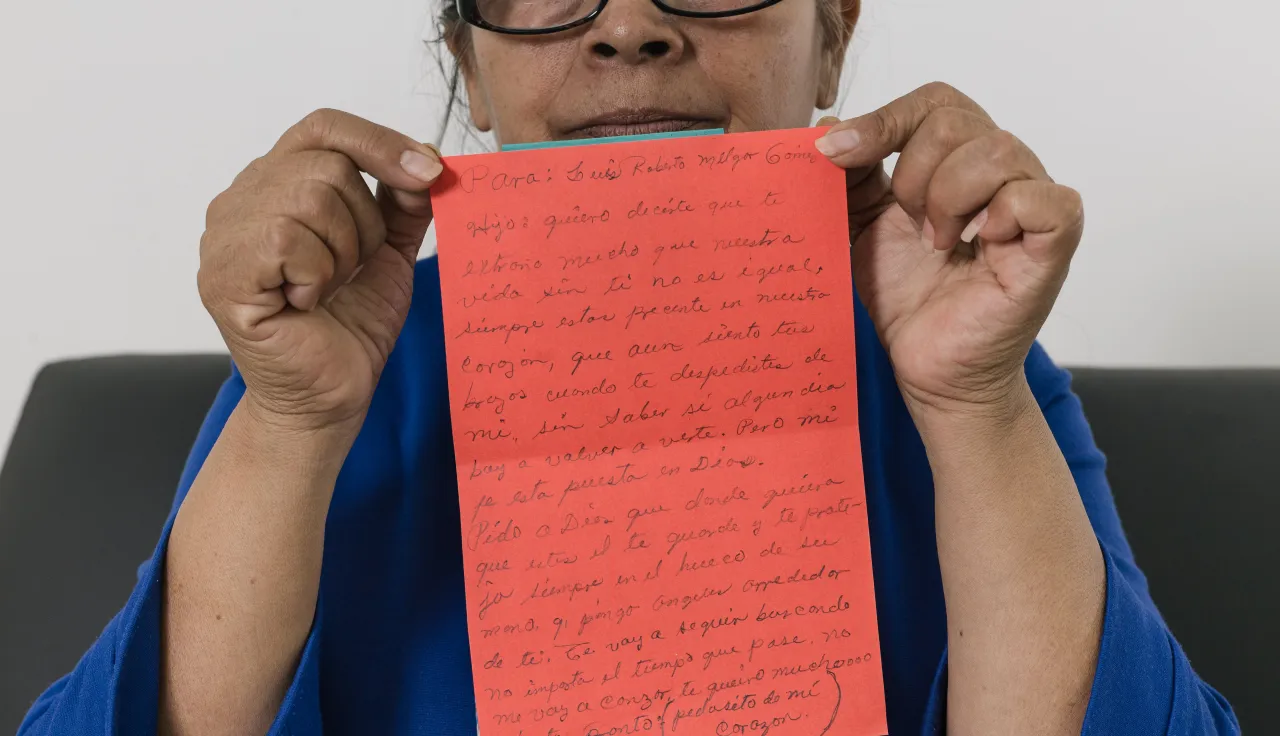 Para: Luis Roberto Melgar Gomez
Hijo: quiero decirte que te
extraño mucho que nuestra
vida sin ti no es igual,
siempre estas precente en nuestro
Corazon, que aun siento tus
brazos cuando te despedistes de
mi, sin saber si algun dia
boy a valver a verte. Pero mi
fe esta puesta en Dios.
Pido a Dios que donde quiera
que estes el te guarde y te prote-
ja siempre en el hueco de su
mano, y ponga angeles arrededor
de ti. Te voy a seguir buscando
no importa el tiempo que pase. no
me voy a canzar, te quiero muchoooo
pedasito de mi
Corazon.